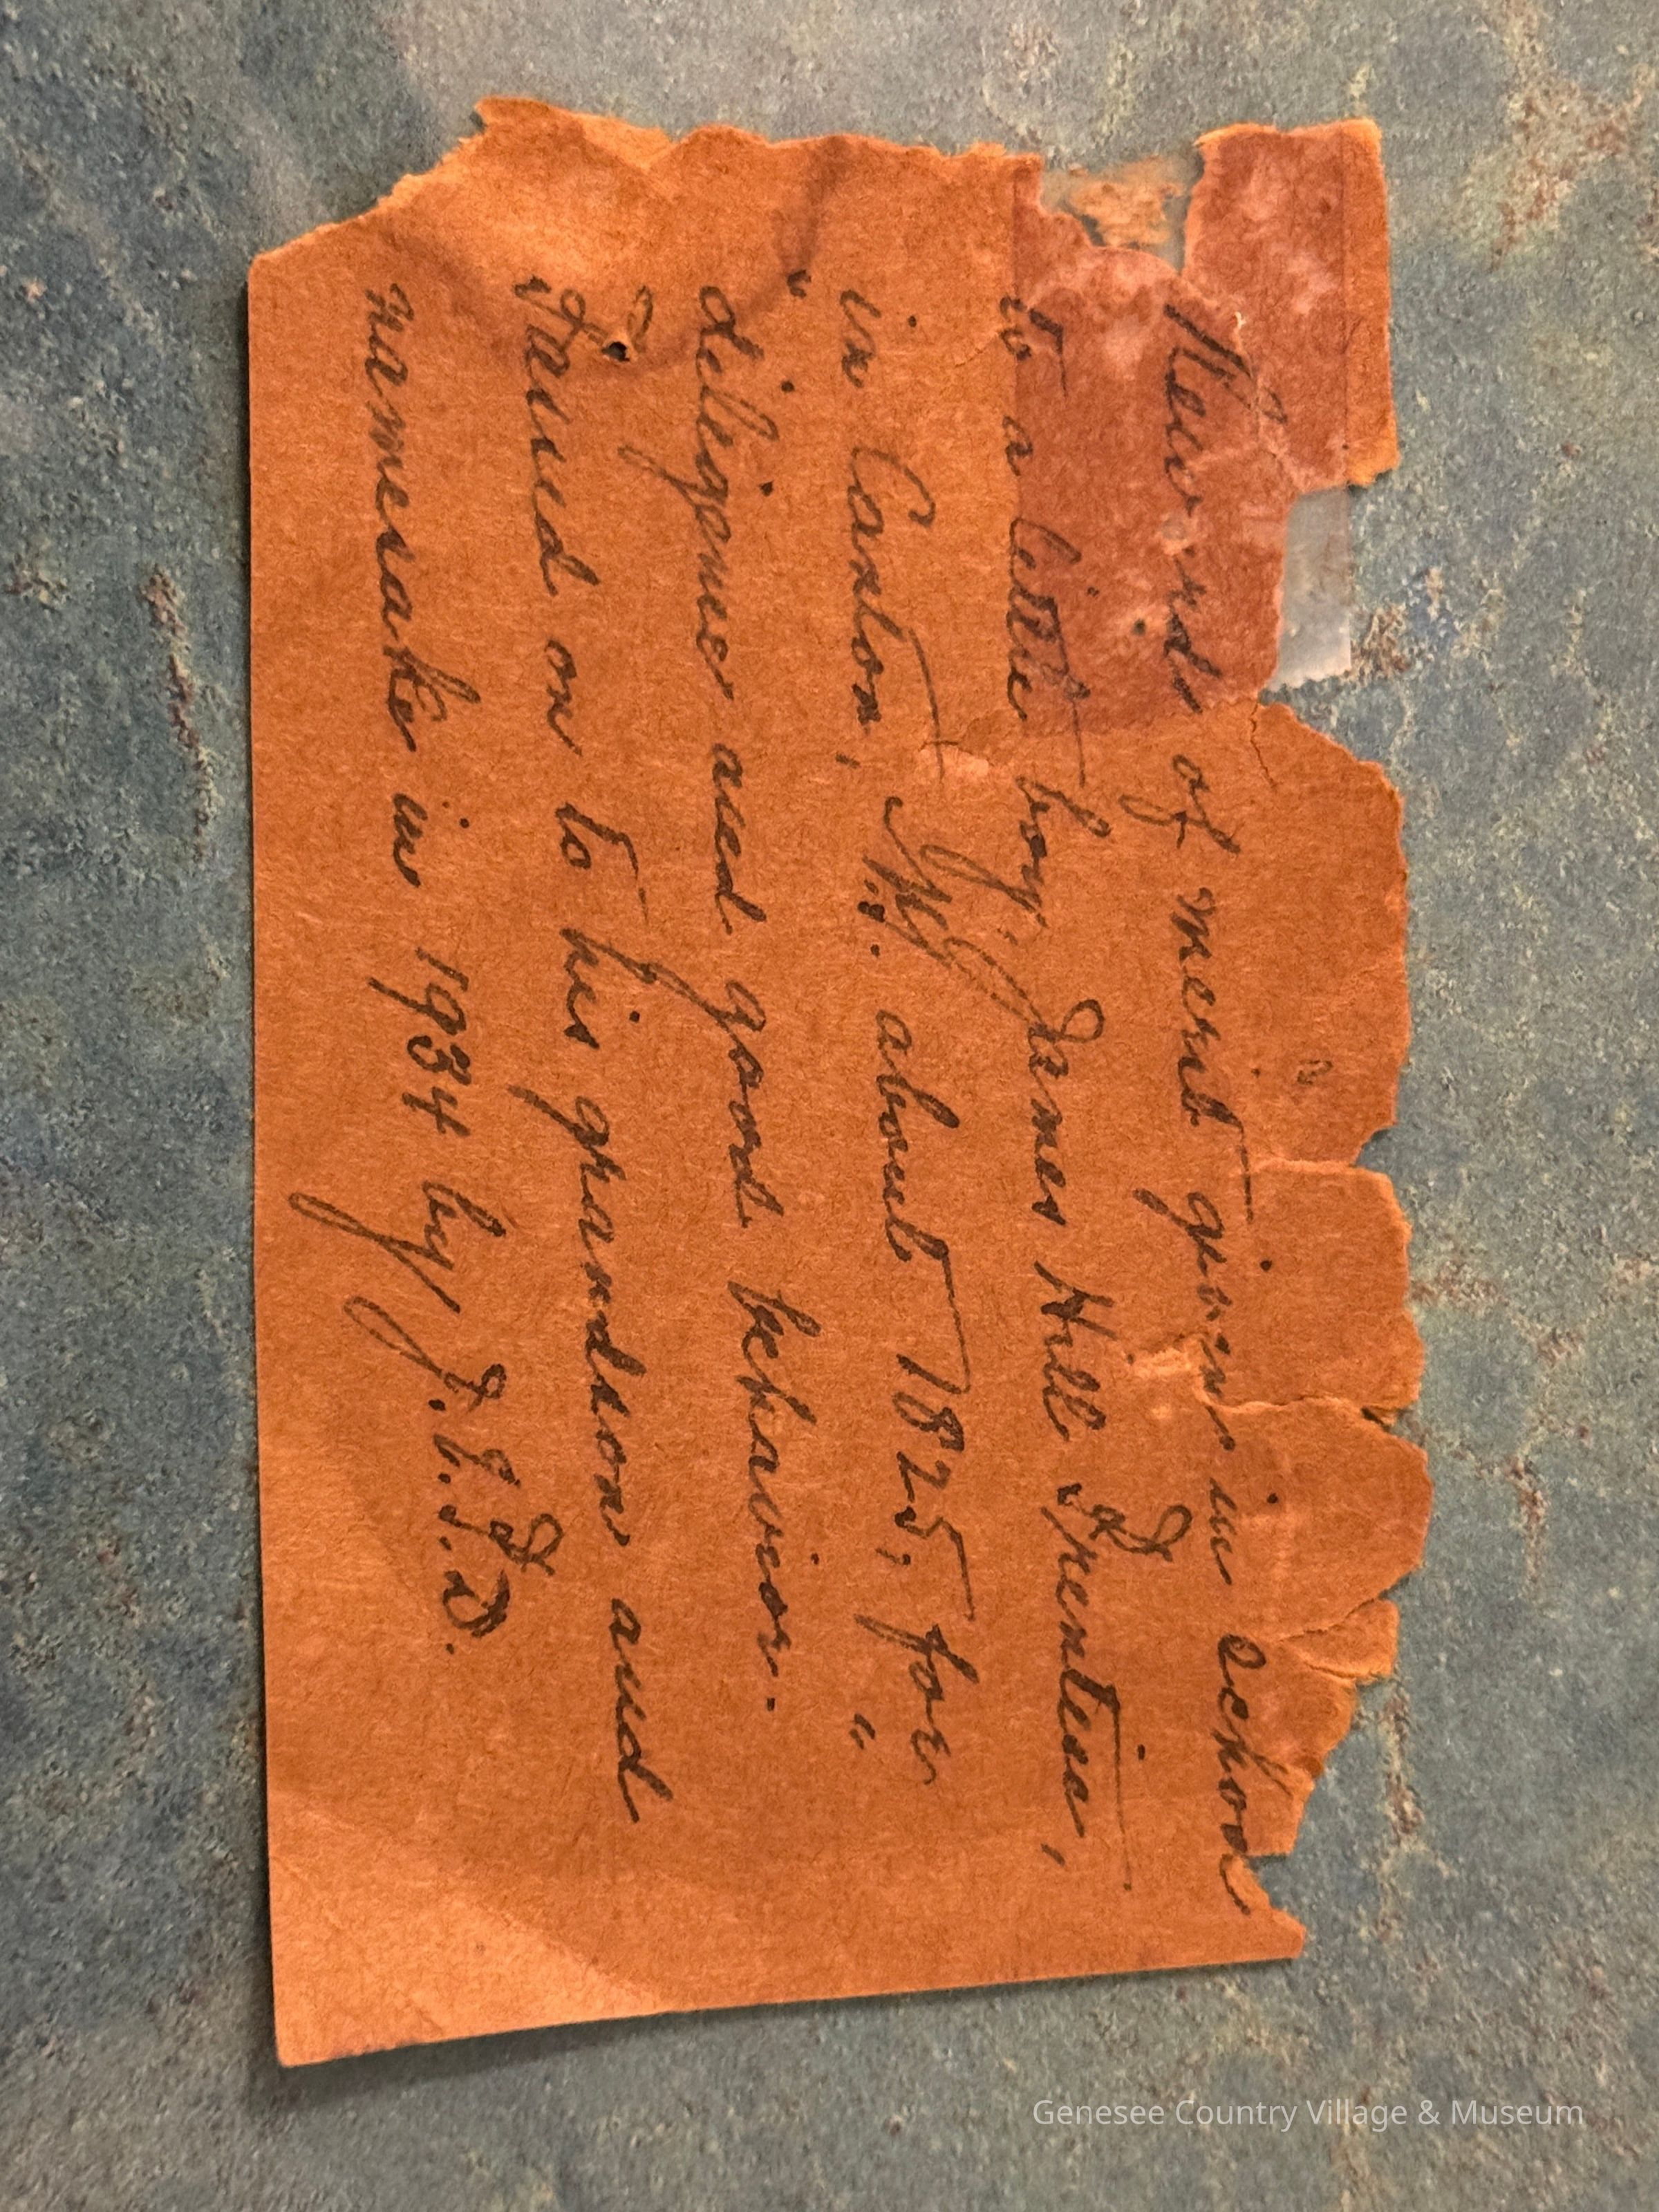 Rewards of merit given in school
to a little boy, James Hill Prentiss,
in Canton, N.Y. about 1825, for
"diligence and good behavior."
Passed on to his grandson and
namesake in 1934 by
Genesee Country Village & Museum